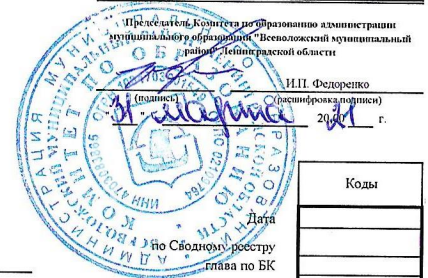 Председатель Комитета по образованию администрации
муниципального образования "Всеволожский муниципальный
район" Ленинградской области
И.П. Федоренко
(подпись) (расшифровка подписи)
"31" марта 2021 г.
Коды
Дата
по Сводному реестру
глава по БК
АДМИНИСТРАЦИЯ МУНИ
КОМИТЕТ ПО ОБР
ИНН